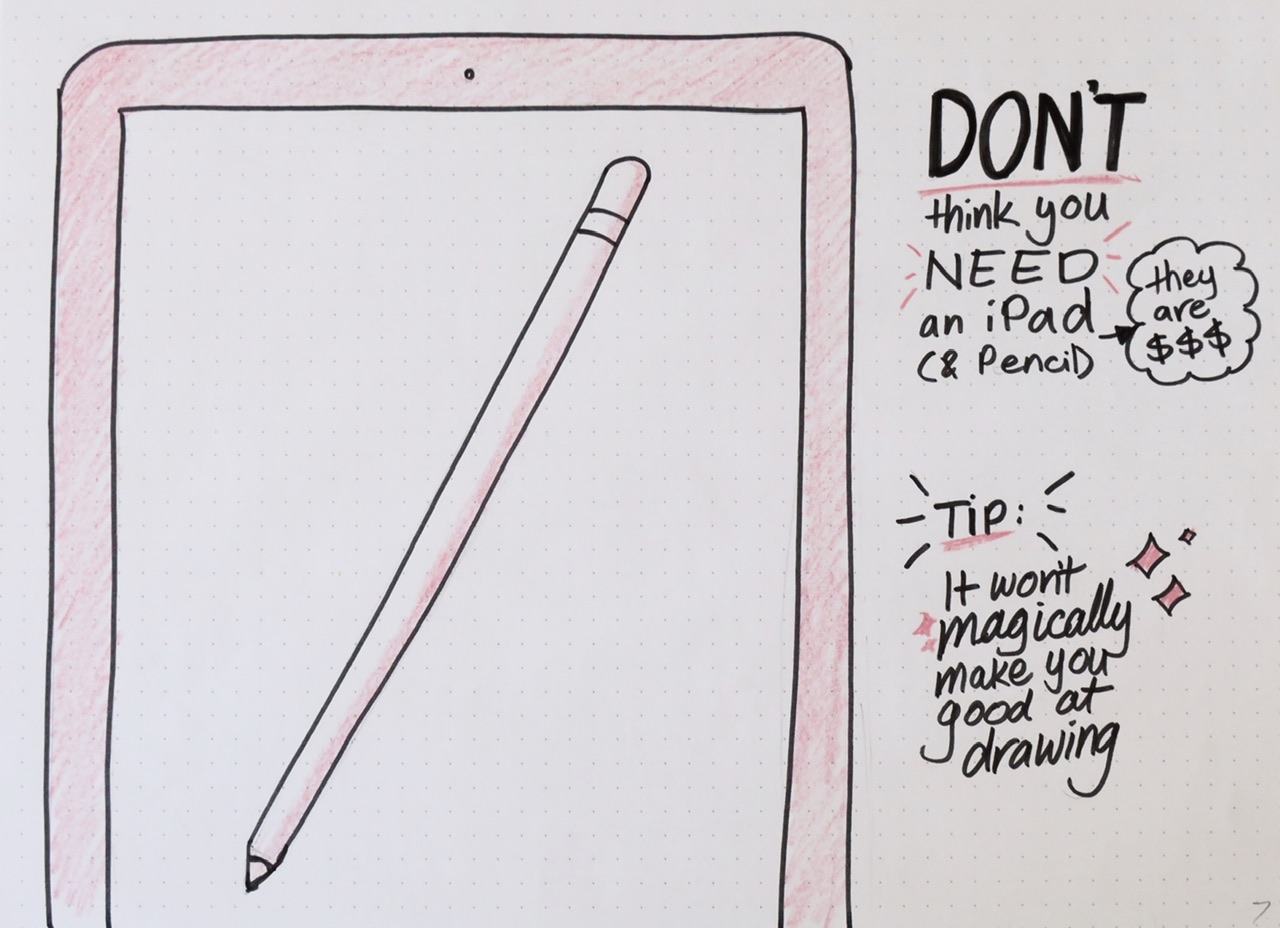 DON'T
think you
NEED
an iPad
(& Pencil)
they
are
$$$
TIP:
It won't
magically
make you
good at
drawing
7